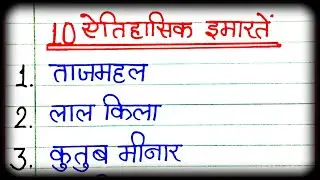 10 ऐतिहासिक इमारतें
1. ताजमहल
2. लाल किला
3. कुतुब मीनार